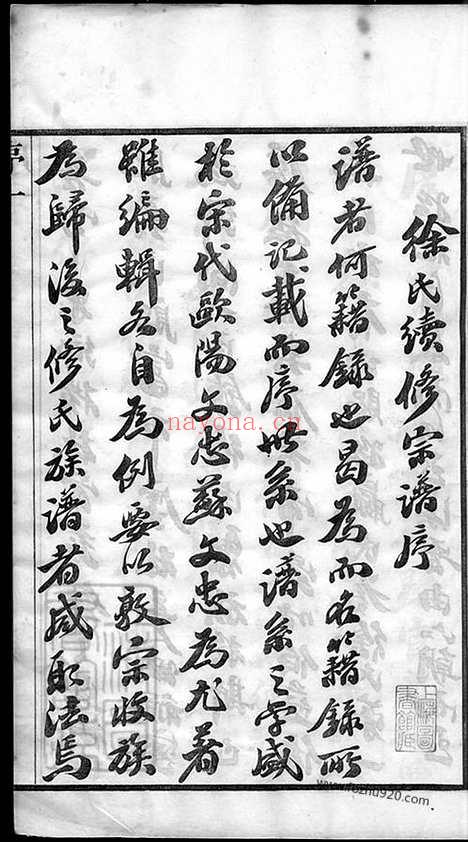 徐氏續修宗譜序
譜者何籍錄也曷為而名籍錄所
以備記載而序世系也譜系之學盛
於宋代歐陽文忠蘇文忠為尤著
雖編輯各自為例要以敦宗收族
為歸後之修氏族譜者咸取法焉
序一
上海圖書館藏
nayona.cn